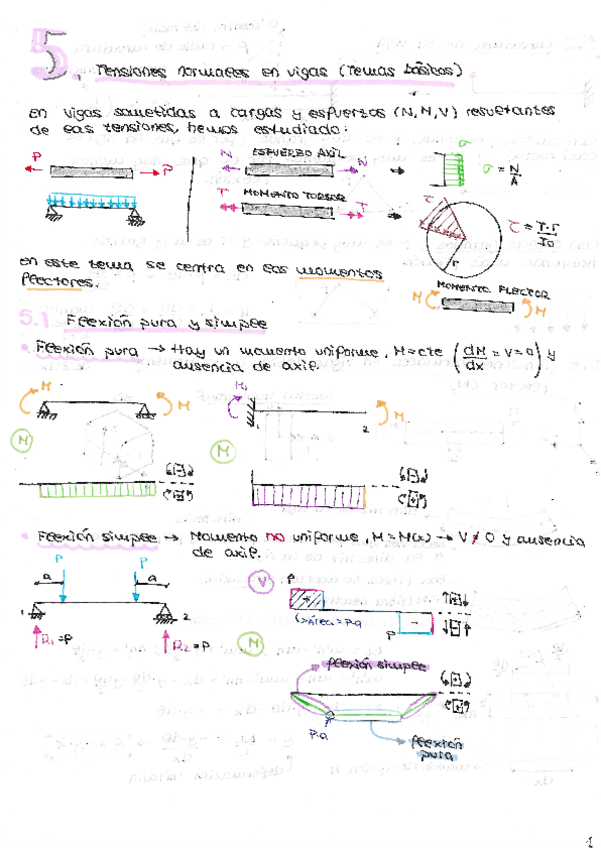 5. Tensiones normales en vigas (Temas básicos)
en vigas sometidas a cargas y esfuerzos (N, M, V) resultantes
de las tensiones, hemos estudiado:
P P
N ESFUERZO AXIL N
σ
σ = N/A
T MOMENTO TORSOR T
τ
τ = T·r/I₀
r
en este tema se centra en los momentos
flectores.
MOMENTO FLECTOR
M M
5.1 Flexión pura y simple
• Flexión pura → Hay un momento uniforme, M=cte (dM/dx = V = 0) y
ausencia de axil.
M M
M₁ M
1 2
M
M
• Flexión simple → Momento no uniforme, M = M(x) → V ≠ 0 y ausencia
de axil.
P P
a a
1 2
R₁ = P R₂ = P
V
P
+
↳Área = P·a
P
-
M
flexión simple
P·a
flexión
pura
1